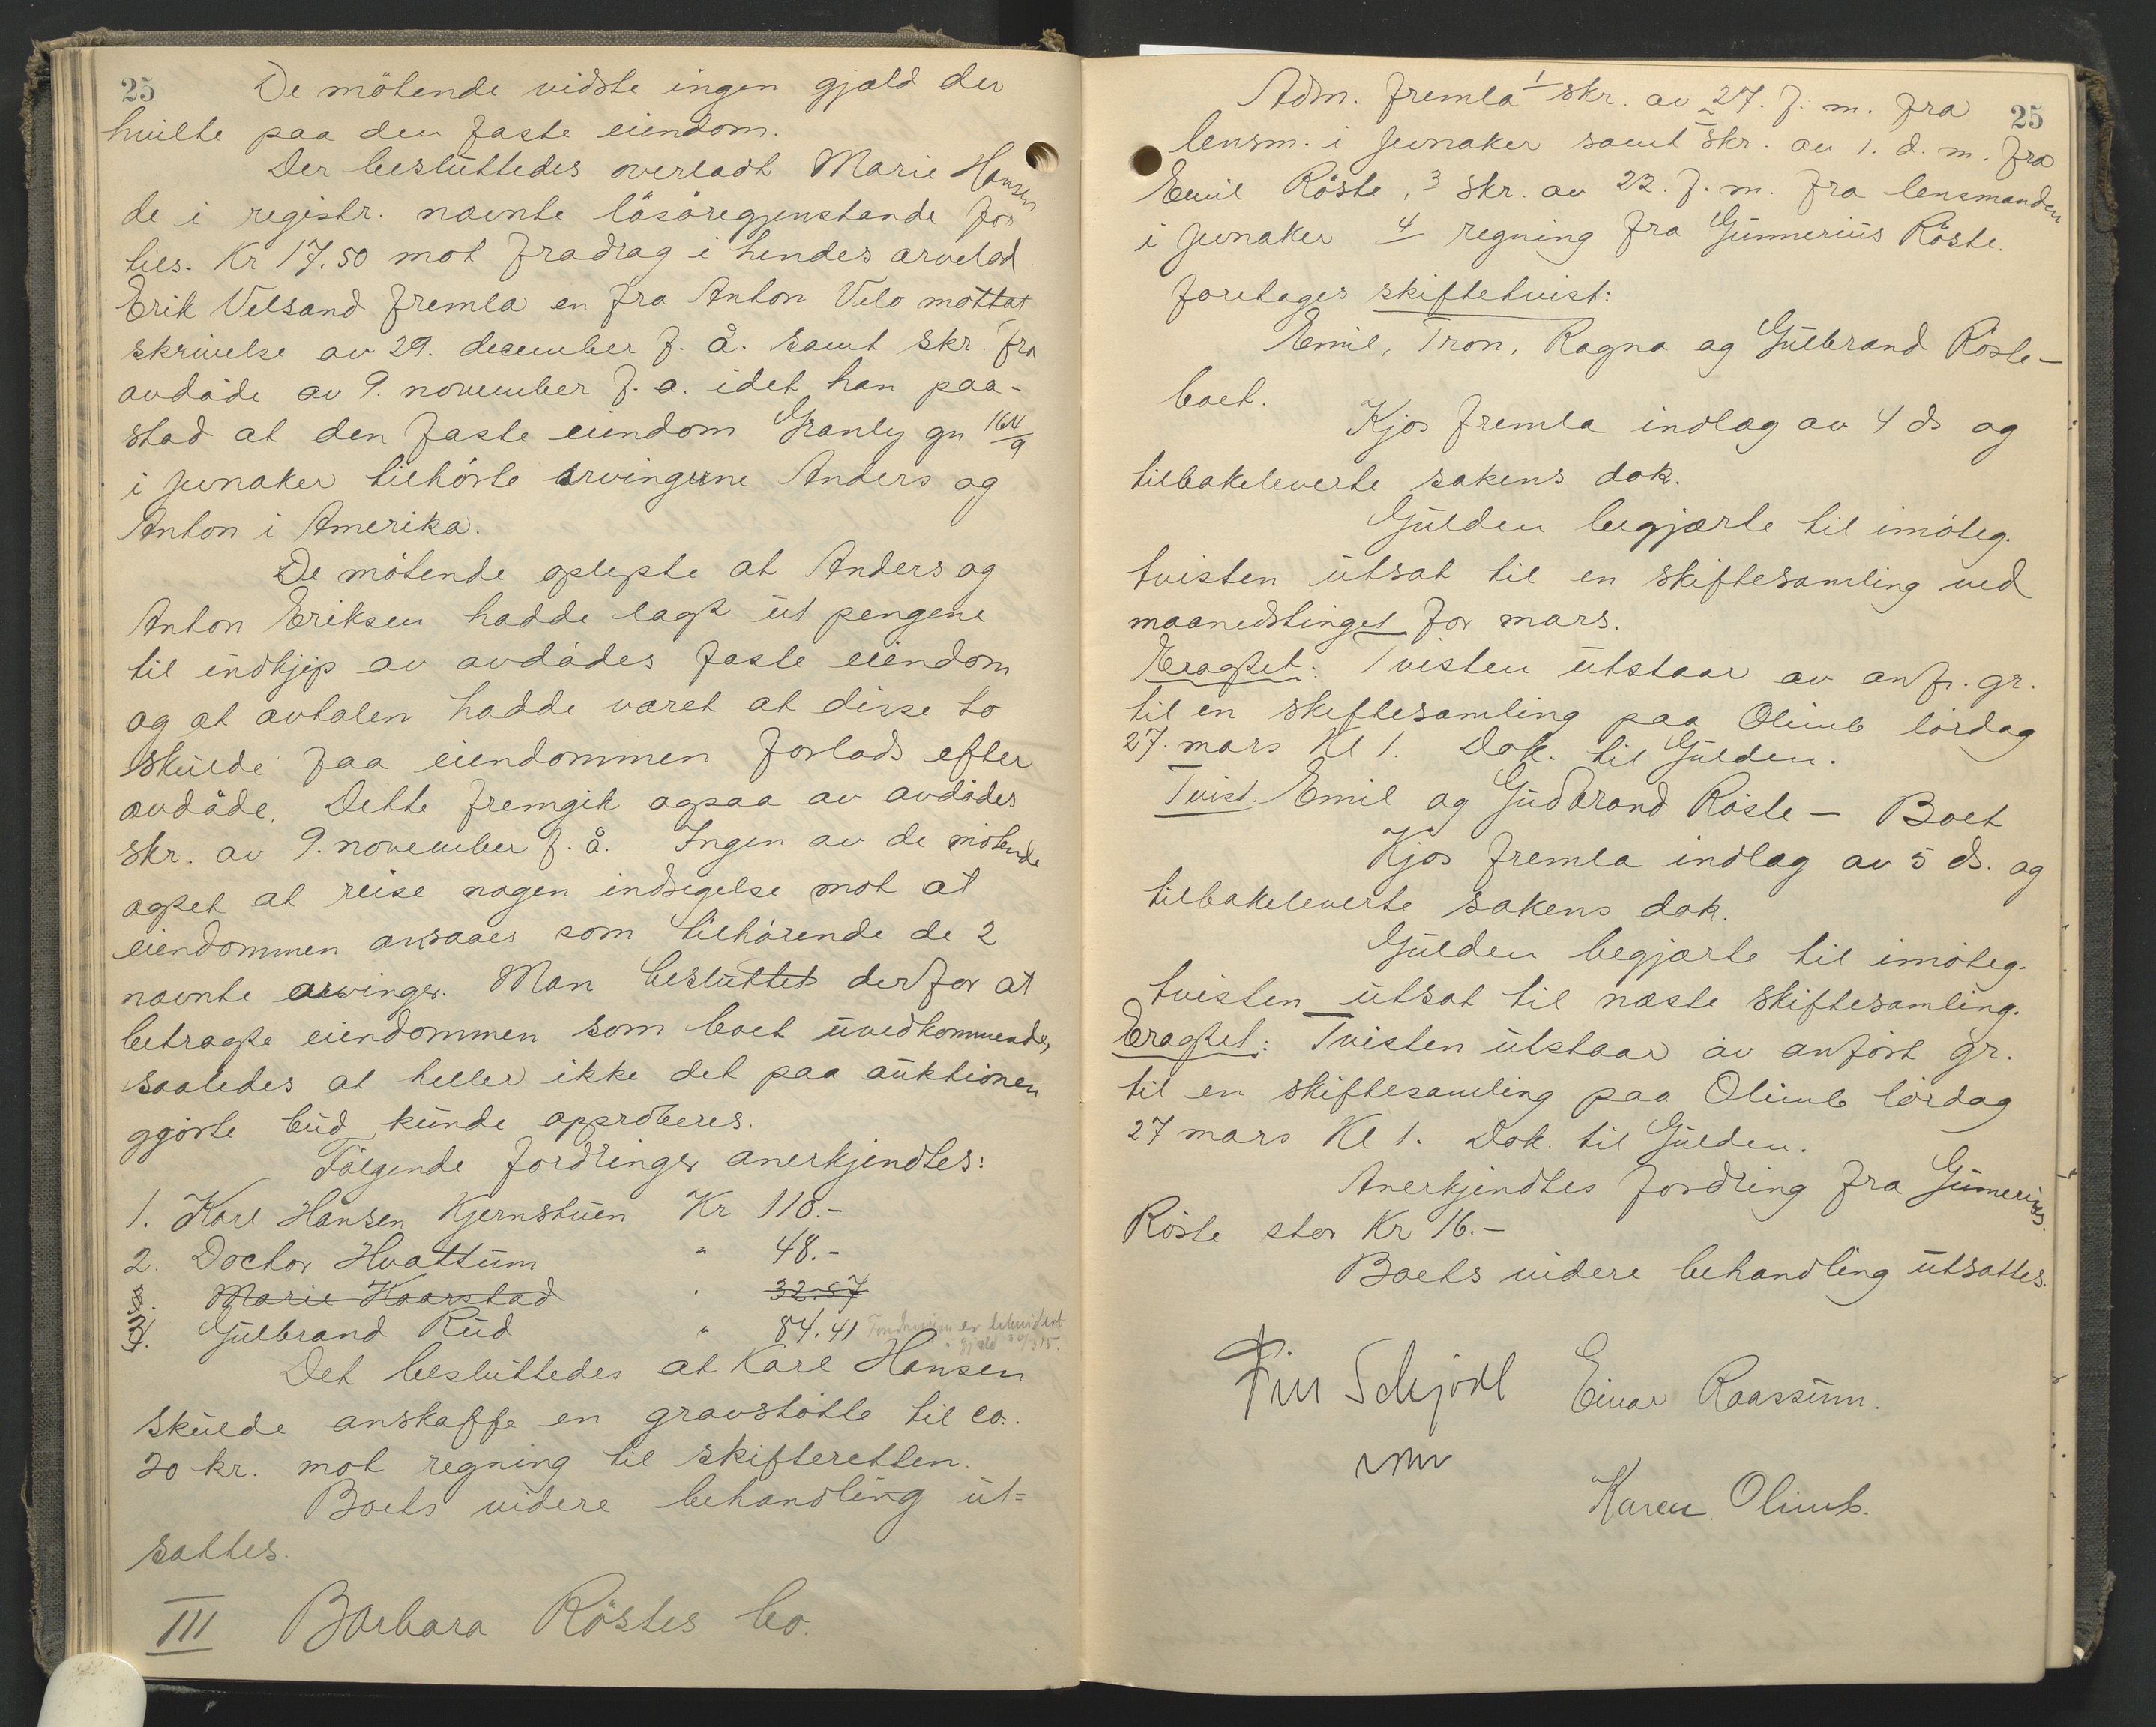 25
De møtende vidste ingen gjæld der
hvilte paa den faste eiendom.
Der besluttedes overladt Marie Hansen
de i registr. nævnte løsøregjenstande for
tils. Kr 17.50 mot fradrag i hendes arvelod
Erik Velsand fremla en fra Anton Velo mottat
skrivelse av 29. december f. å. samt skr. fra
avdøde av 9. november f. a. idet han paa-
stod at den faste eiendom Granly gn 164/9
i Jevnaker tilhørte arvingerne Anders og
Anton i Amerika.
De møtende oplyste at Anders og
Anton Eriksen hadde lagt ut pengene
til indkjøp av avdødes faste eiendom
og at avtalen hadde været at disse to
skulde faa eiendommen forlods efter
avdøde. Dette fremgik ogsaa av avdødes
skr. av 9. november f. å. Ingen av de møtende
agtet at reise nogen indsigelse mot at
eiendommen ansaaes som tilhørende de 2
nævnte arvinger. Man besluttet derfor at
betragte eiendommen som boet uvedkommende,
saaledes at heller ikke det paa auktionen
gjorte bud kunde approberes.
Følgende fordringer anerkjendtes:
1. Karl Hansen Kjernstuen Kr 110.-
2. Doctor Hvattum " 48.-
3. Marie Haarstad " 32.57
4. Gulbrand Rud " 84.41 Fordringen er likvidert
i gjæld
Det besluttedes at Karl Hansen
skulde anskaffe en gravstøtte til ca.
20 kr. mot regning til skifteretten.
Boets videre behandling ut=
sattes.
III Barbara Røstes bo.
25
Adm. fremla 1 skr. av 27. f. m. fra
lensm. i Jevnaker samt 2 skr. av 1. d. m. fra
Emil Røste, 3 skr. av 22. f. m. fra lensmanden
i Jevnaker 4 regning fra Gunnerius Røste.
foretages skiftetvist:
Emil, Tron, Ragna og Gulbrand Røste -
boet.
Kjos fremla indlæg av 4 ds og
tilbakeleverte sakens dok.
Gulden begjærte til imøteg.
tvisten utsat til en skiftesamling ved
maanedstinget for mars.
Eragtet: Tvisten utstaar av anf. gr.
til en skiftesamling paa Olimb lørdag
27. mars Kl 1. Dok. til Gulden.
Tvist. Emil og Gudbrand Røste - Boet
Kjos fremla indlæg av 5 ds. og
tilbakeleverte sakens dok.
Gulden begjærte til imøteg.
tvisten utsat til næste skiftesamling.
Eragtet: Tvisten utstaar av anført gr.
til en skiftesamling paa Olimb lørdag
27 mars Kl 1. Dok. til Gulden.
Anerkjendtes fordring fra Gunerius
Røste stor Kr 16.-
Boets videre behandling utsattes.
Finn Schjødt Einar Raassum.
Karen Olimb.